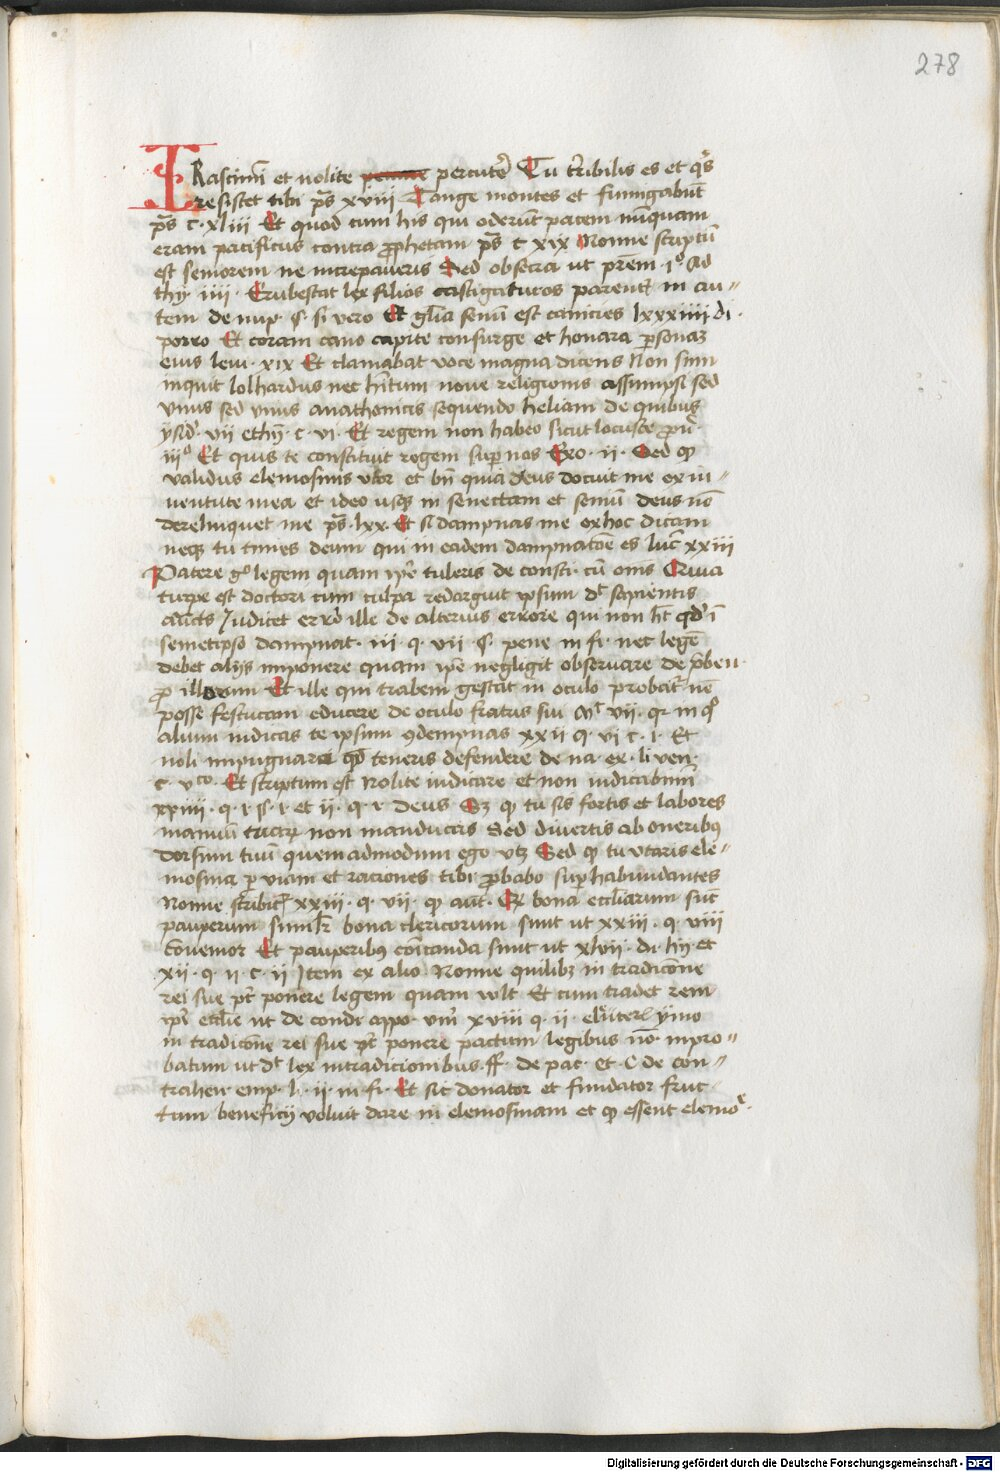 278
IRascimini et nolite percutere Tu terribilis es et quis
resistet tibi ps xviii Tange montes et fumigabunt
ps c xliii Et quod cum his qui oderunt pacem nunquam
eram pacificus contra prophetam ps c xix Nonne scriptum
est seniorem ne increpaveris Sed obsecra ut prem 1º ad
thy iiii Erubescat lex filios castigatores parentum in au-
tem de nup s si vero Et glia senum est canicies lxxxiiii di
porro Et coram cano capite consurge et honora personam
eius levi xix Et clamabat voce magna dicens Non sum
inquit lolhardus nec habitum nove religionis assumpsi sed
unus sed unus anathonicis sequendo heliam de quibus
vii c vi Et regem non habeo sicut locuste prou
iiiº Et quis te constituit regem super nos Exo ii Sed quod
validus elemosinis utor et bn quia deus docuit me ex iu-
ventute mea et ideo usque in senectam et senium deus non
derelinquet me ps lxx Et si dampnas me ex hoc dicam
neque tu times deum qui in eadem dampnatone es luc xxiii
Patere go legem quam ipse tuleris de consti cum omnis Quia
turpe est doctori cum culpa redarguit ipsum dr sapientis
aucts Judicet error ille de alterius errore qui non ht quod in
semetipso dampnat iii q vii s pene in fi nec legem
debet alijs imponere quam ipse negligit observare de preben
pro illorum Et ille qui trabem gestat in oculo probatur non
posse festucam educere de oculo fratris sui Mt vii qr in quo
alium iudicas te ipsum condempnas xxii q vi c i Et
noli impugnare quod teneris defendere de na ex li ven
c vco Et scriptum est Nolite iudicare et non iudicabimini
xxiiii q i s i et ii q i deus Et quod tu sis fortis et labores
manuum tuarum non manducas Sed divertis ab oneribus
dorsum tuum quemadmodum ego utor Sed quod tu utaris ele-
mosina per viam et raciones tibi probabo superhabundantes
Nonne scribitur xxiii q vii quod aut Quia bona ecclesiarum sunt
pauperum similiter bona clericorum sunt ut xxiii q viii
convenior Et pauperibus eroganda sunt ut xlvii di hij et
xii q ii c ii Item ex alio Nonne quilibet in tradicone
rei sue potest ponere legem quam vult Et cum tradet rem
ipsi ecclie ut de condi appo vm xviii q ii eleuteri ymmo
in tradicone rei sue potest ponere pactum legibus non inpro-
batum ut dr lex in tradicionibus ff de pac et C de con-
trahen emp l ii in fi Et sic donator et fundator fruc
tum beneficij voluit dare in elemosinam et quod essent elemo
Digitalisierung gefördert durch die Deutsche Forschungsgemeinschaft - DFG